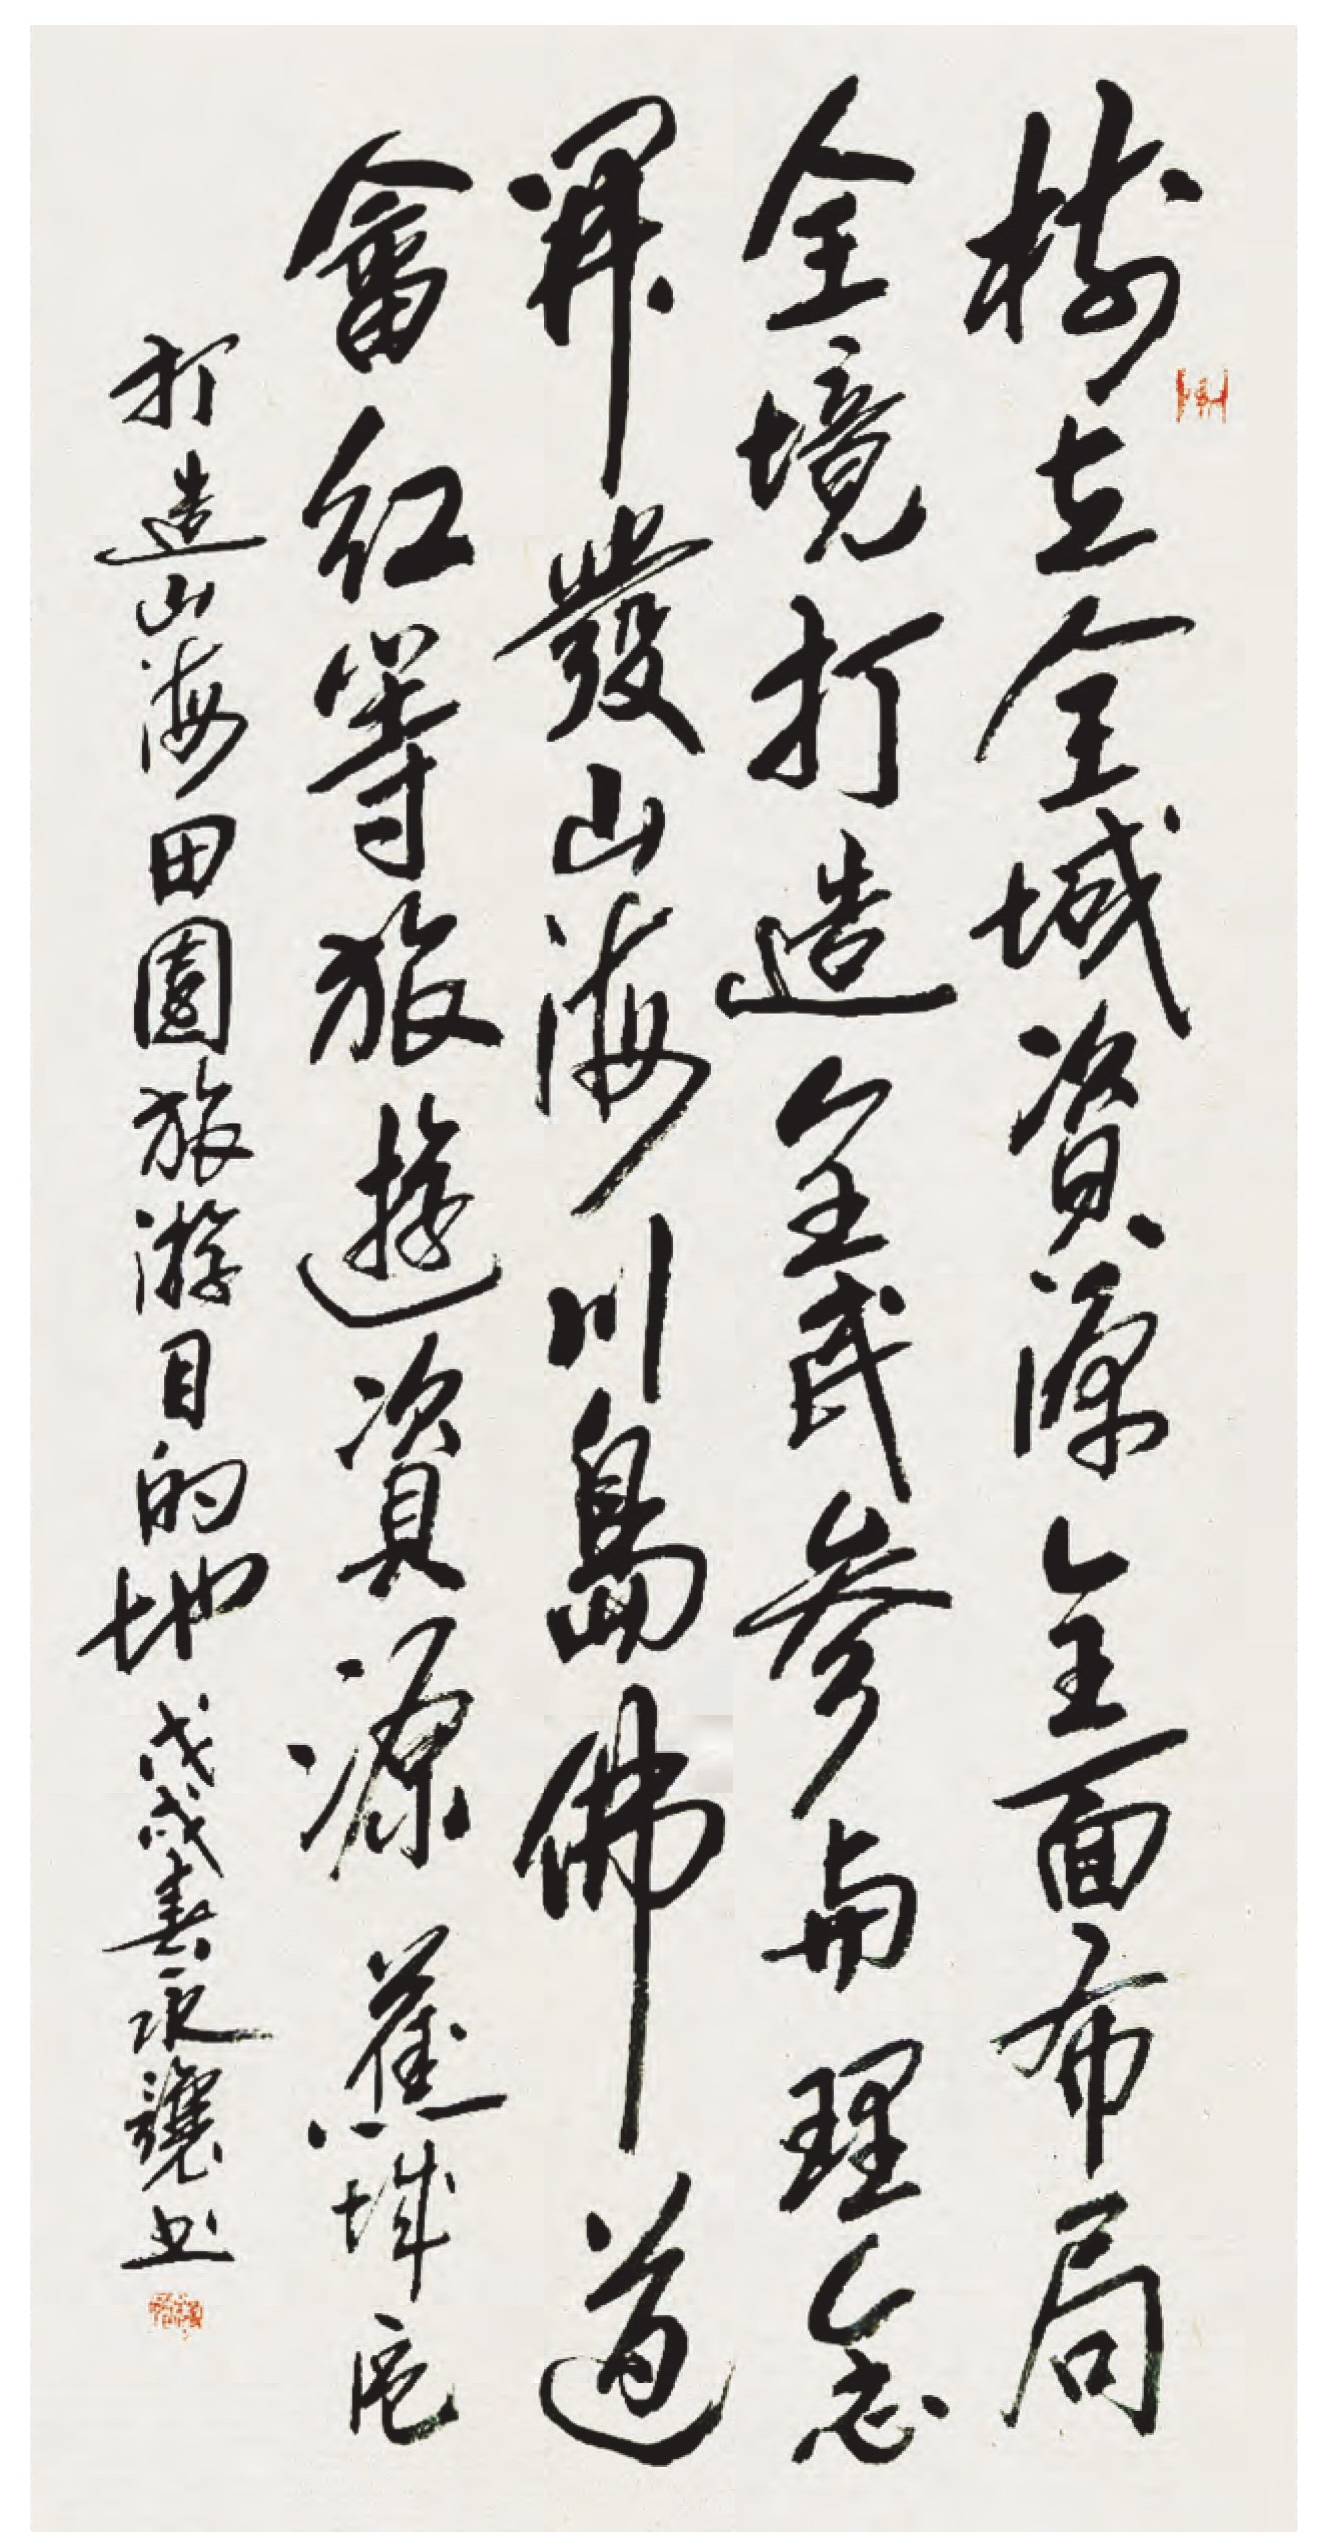 樹立全域資源全面布局
全境打造全民參与理念
開發山海川島佛道
畲紅等旅遊資源蕉城區
打造山海田園旅游目的地戊戌春永讓书